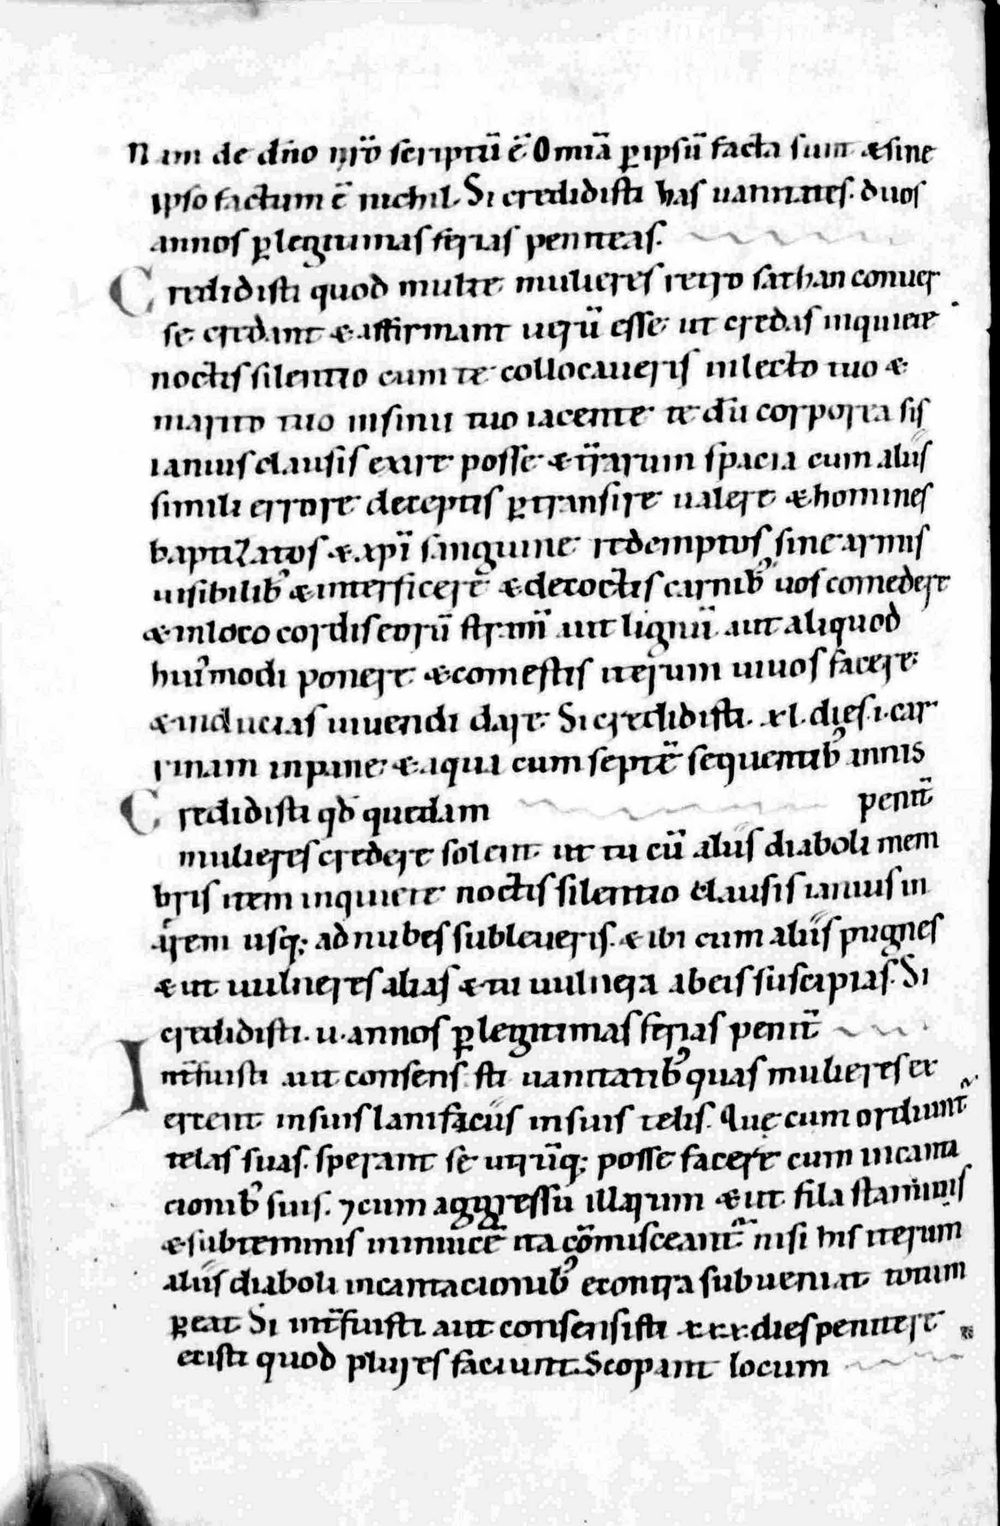 Nam de dño nr̃o scriptũ ẽ Omĩa ꝑ ipsũ facta sunt & sine
ipso factum ẽ nichil. Si credidisti has uanitates. duos
annos ꝑ legitimas ferias peniteas.
Credidisti quod multe mulieres retro sathan conuer
se credant & affirmant uerũ esse ut credas inquiete
noctis silentio cum te collocaueris in lecto tuo &
marito tuo in sinu tuo iacente te dũ corporea sis
ianuis clausis exire posse & tr̃arum spacia cum aliis
simili errore deceptis ꝑtransire ualere & homines
baptizatos & xp̃i sanguine redemptos sine armis
uisibilibꝰ & interficere & decoctis carnibꝰ uos comedere
& in loco cordis eorũ stram̃ aut lignũ aut aliquod
huiꝰmodi ponere & comestis iterum uiuos facere
& inducias uiuendi dare Si credidisti. xl. dies .i. car
rinam in pane & aqua cum septẽ sequentibꝰ annis
Credidisti qđ quedam penit̃
mulieres credere solent ut tu cũ aliis diaboli mem
bris item inquiete noctis silentio clausis ianuis in
aerem usqꝫ ad nubes subleueris. & ibi cum aliis pugnes
& ut uulneres alias & tu uulnera ab eis suscipias. Si
credidisti. ii. annos ꝑ legitimas ferias penit̃
Int̃fuisti aut consensisti uanitatibꝰ quas mulieres ex
ercent in suis lanificiis in suis telis. Quę cum ordiunt̃
telas suas. sperant se utrũqꝫ posse facere cum incanta
cionibꝰ suis. ⁊ cum aggressu illarum & ut fila staminis
& subteminis in inuicẽ ita cõmisceant̃ nisi his iterum
aliis diaboli incantacionibꝰ econtra subueniat totum
ꝑeat Si int̃fuisti aut consensisti xxx. dies penitere
ecisti quod plures faciunt. Scopant locum